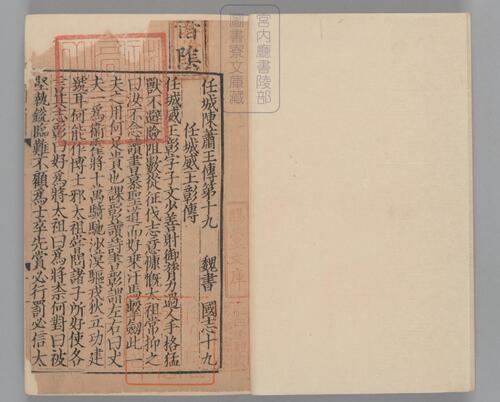 任城陳蕭王傳第十九 魏書 國志十九
任城威王彰傳
任城威王彰字子文少善射御膂力過人手格猛
獸不避險阻數從征伐志意慷慨太祖常抑之
曰汝不念讀書慕聖道而好乘汗馬擊劒此一
夫之用何足貴也課彰讀詩書彰謂左右曰丈
夫一爲衛霍將十萬騎馳沙漠驅戎狄立功建
號耳何能作博士邪太祖嘗問諸子所好使各
言其志彰曰好爲將太祖曰爲將柰何對曰被
堅執銳臨難不顧爲士卒先賞必行罰必信太
宮内廳書陵部
圖書寮文庫藏